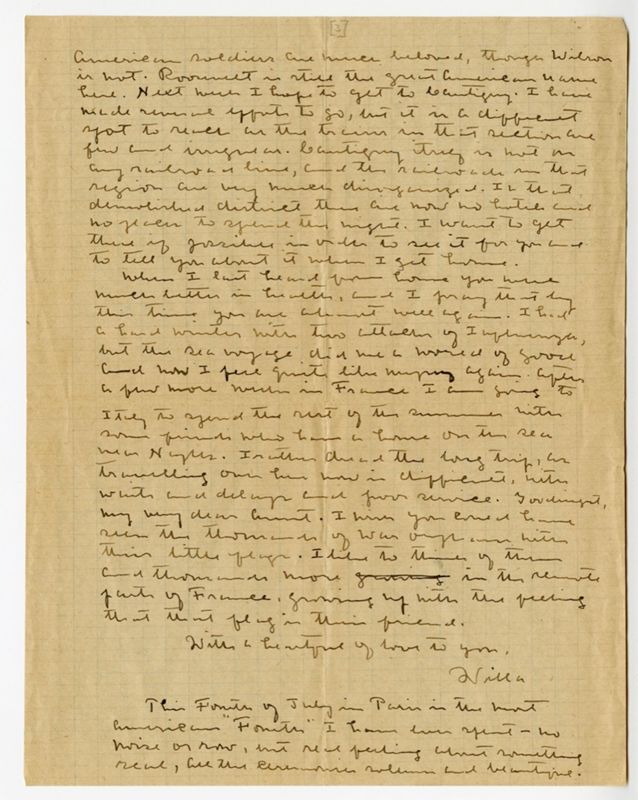 [3]
American soldiers are much beloved, though Wilson
is not. Roosevelt is still the great American name
here. Next week I hope to get to Cantigny. I have
made several efforts to go, but it is a difficult
spot to reach as the trains in that section are
few and irregular. Cantigny itself is not on
any railroad line, and the railroads in that
region are very much disorganized. In that
demolished district there are now no hotels and
no places to spend the night. I want to get
there if possible in order to see it for you and
to tell you about it when I get home.
When I last heard from home you were
much better in health, and I pray that by
this time you are almost well again. I had
a hard winter with two attacks of Influenza,
but the sea voyage did me a world of good
and now I feel quite like myself again. After
a few more weeks in France I am going to
Italy to spend the rest of the summer with
some friends who have a home on the sea
near Naples. I rather dread the long trip, as
travelling over here now is difficult, with
waits and delays and poor service. Goodnight,
my very dear Aunt. I wish you could have
seen the thousands of War Orphans with
their little flags. I like to think of them
and thousands more growing in the remote
parts of France, growing up with the feeling
that that flag is their friend.
With a heartful of love to you,
Willa
This Fourth of July in Paris is the most
American "Fourth" I have ever spent - no
noise or row, but real feeling about something
real, all the ceremonies solemn and beautiful.